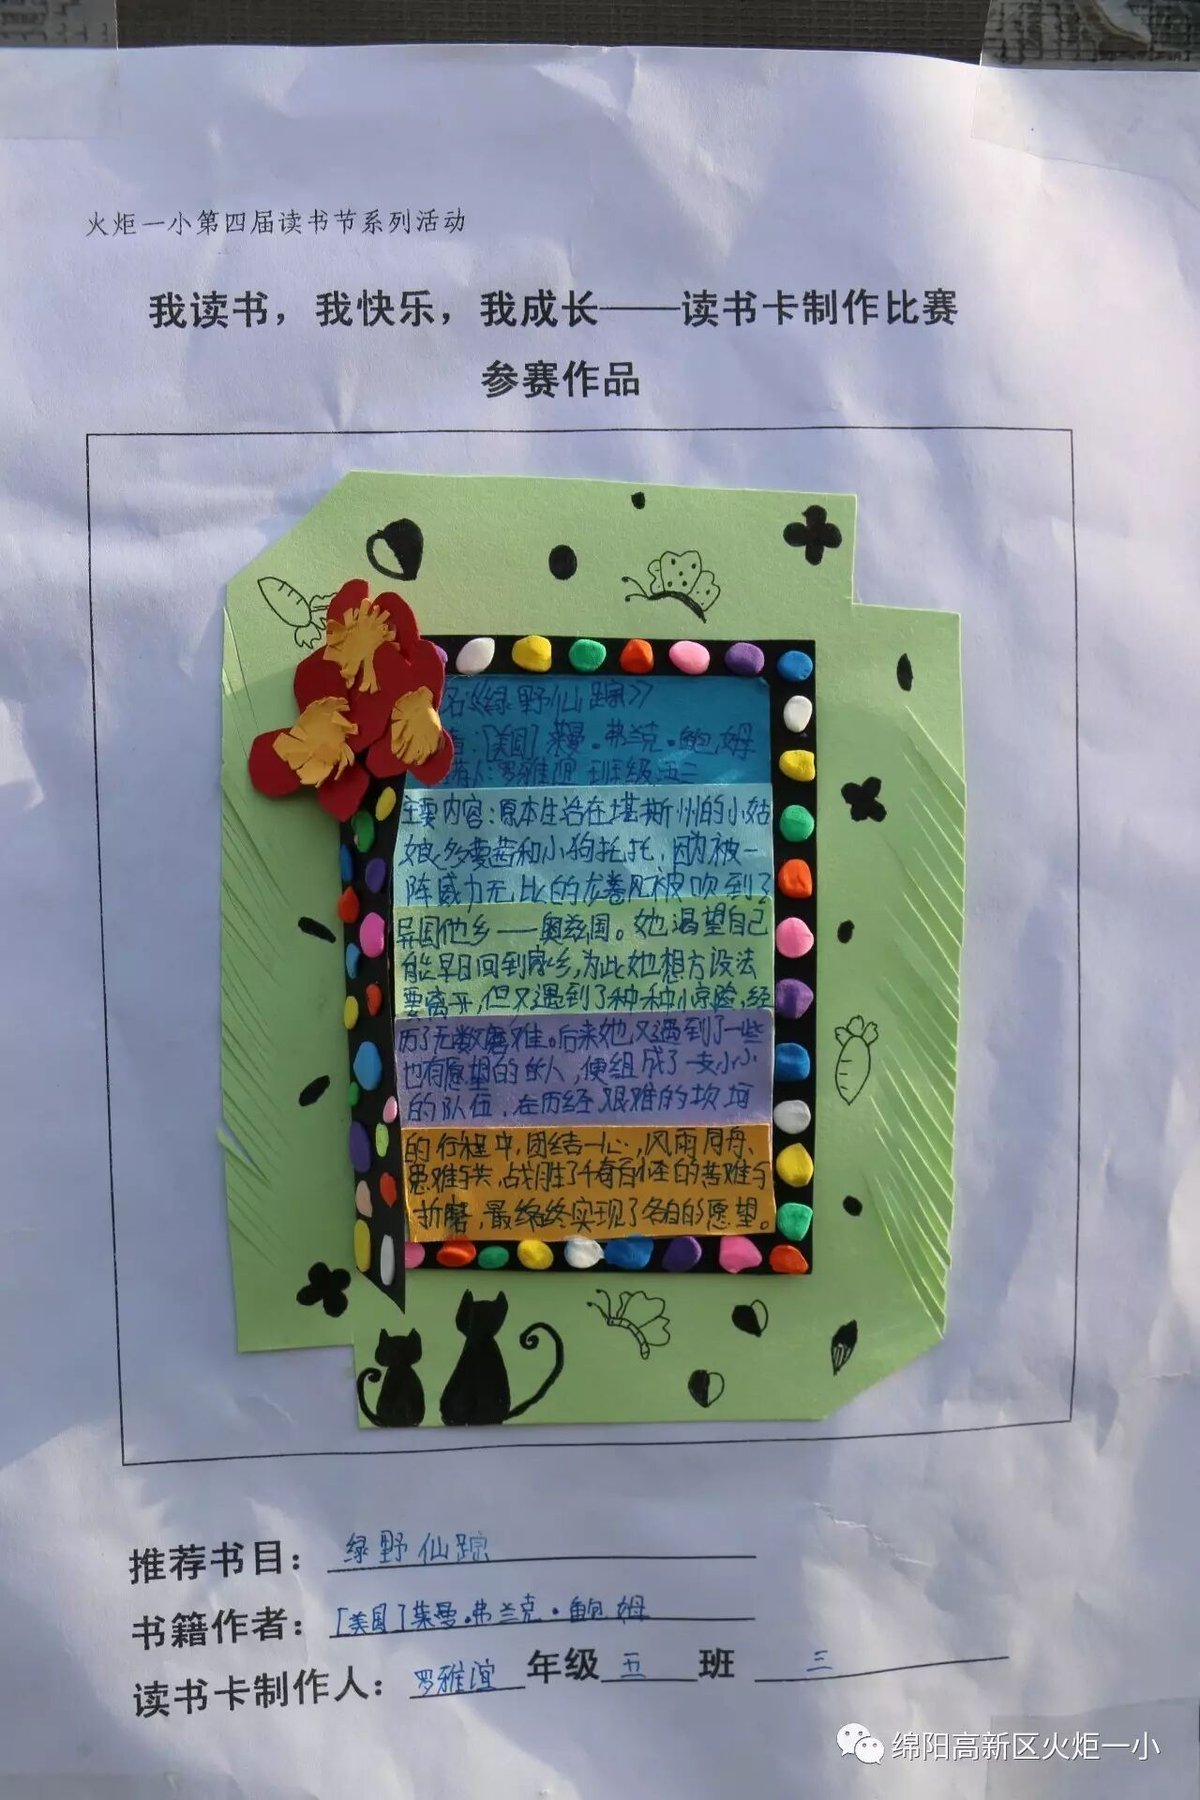 火炬一小第四届读书节系列活动
我读书，我快乐，我成长——读书卡制作比赛
参赛作品
名《绿野仙踪》
者：［美国］莱曼·弗兰克·鲍姆
荐人：罗雅谊 班级：五三
主要内容：原本生活在堪斯州的小姑
娘多萝茜和小狗托托，因为被一
阵威力无比的龙卷风被吹到了
异国他乡——奥兹国。她渴望自己
能早日回到家乡，为此她想方设法
要离开，但又遇到了种种惊险，经
历了无数磨难。后来她又遇到了一些
也有愿望的的人，便组成了一支小小
的队伍，在历经艰难的坎坷
的行程中，团结一心，风雨同舟、
患难与共，战胜了千奇百怪的苦难与
折磨，最终终实现了各自的愿望。
推荐书目：绿野仙踪
书籍作者：［美国］莱曼·弗兰克·鲍姆
读书卡制作人：罗雅谊 年级 五 班 三
绵阳高新区火炬一小